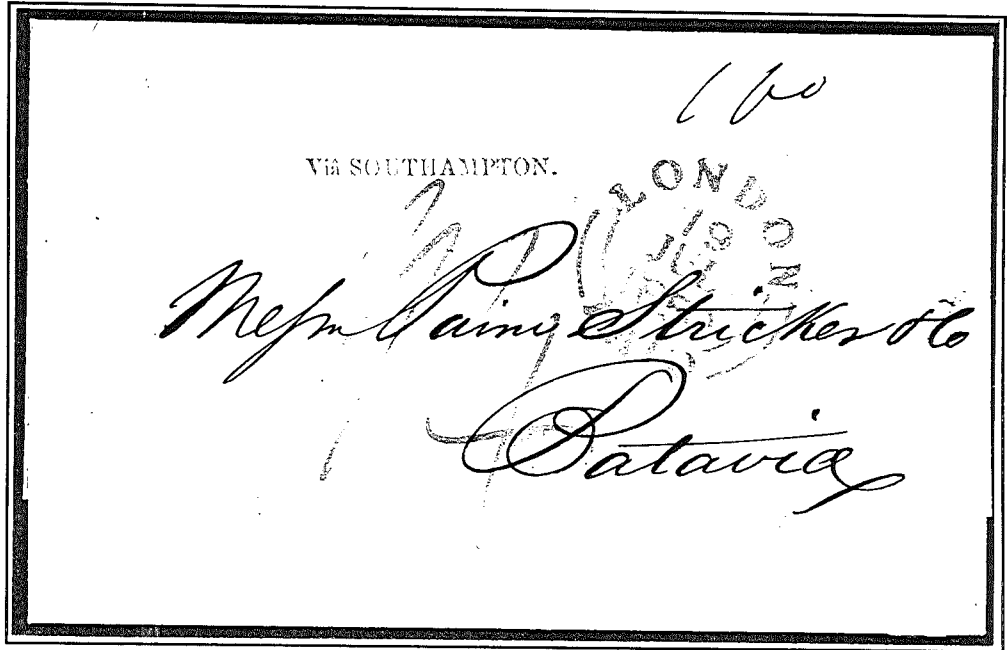 160
Viâ SOUTHAMPTON.
LONDON
Messrs Paine Stricker & Co
Batavia